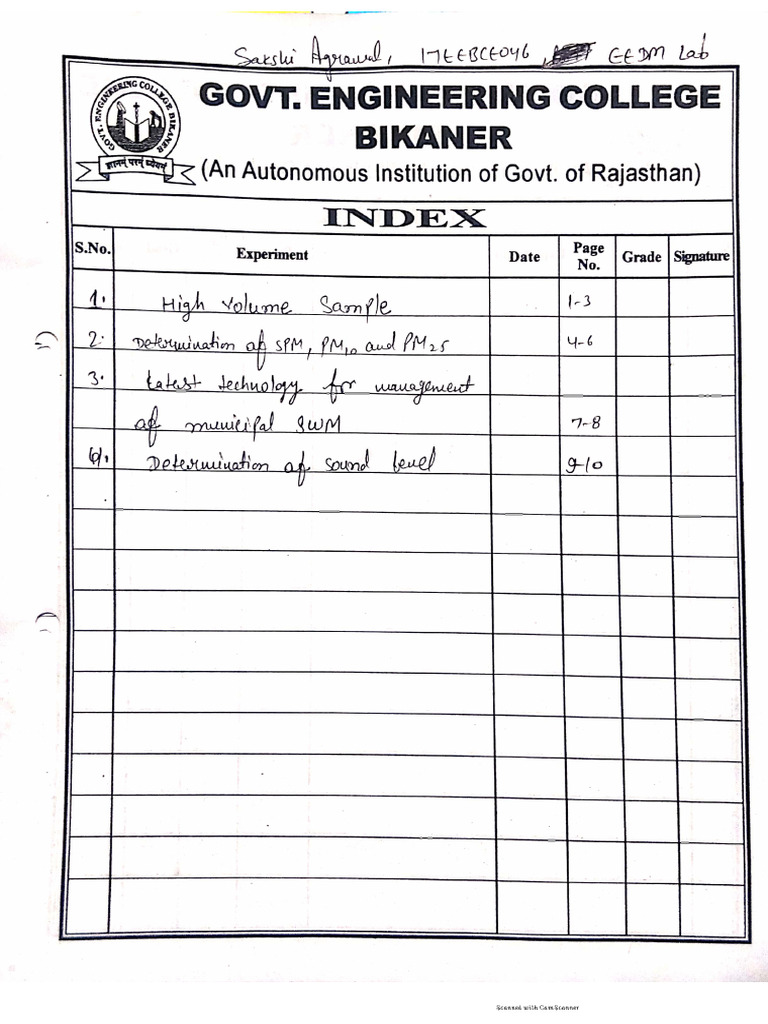 Sakshi Agrawal, 17EEBCE046, EEDM Lab
GOVT. ENGINEERING COLLEGE BIKANER
ज्ञानम् परमं ध्येयम्
GOVT. ENGINEERING COLLEGE
BIKANER
(An Autonomous Institution of Govt. of Rajasthan)
INDEX
S.No. Experiment Date Page No. Grade Signature
1. High Volume Sample 1-3
2. Determination of SPM, PM10 and PM25 4-6
3. Latest technology for management
of municipal SWM 7-8
4. Determination of sound level 9-10
Scanned with CamScanner